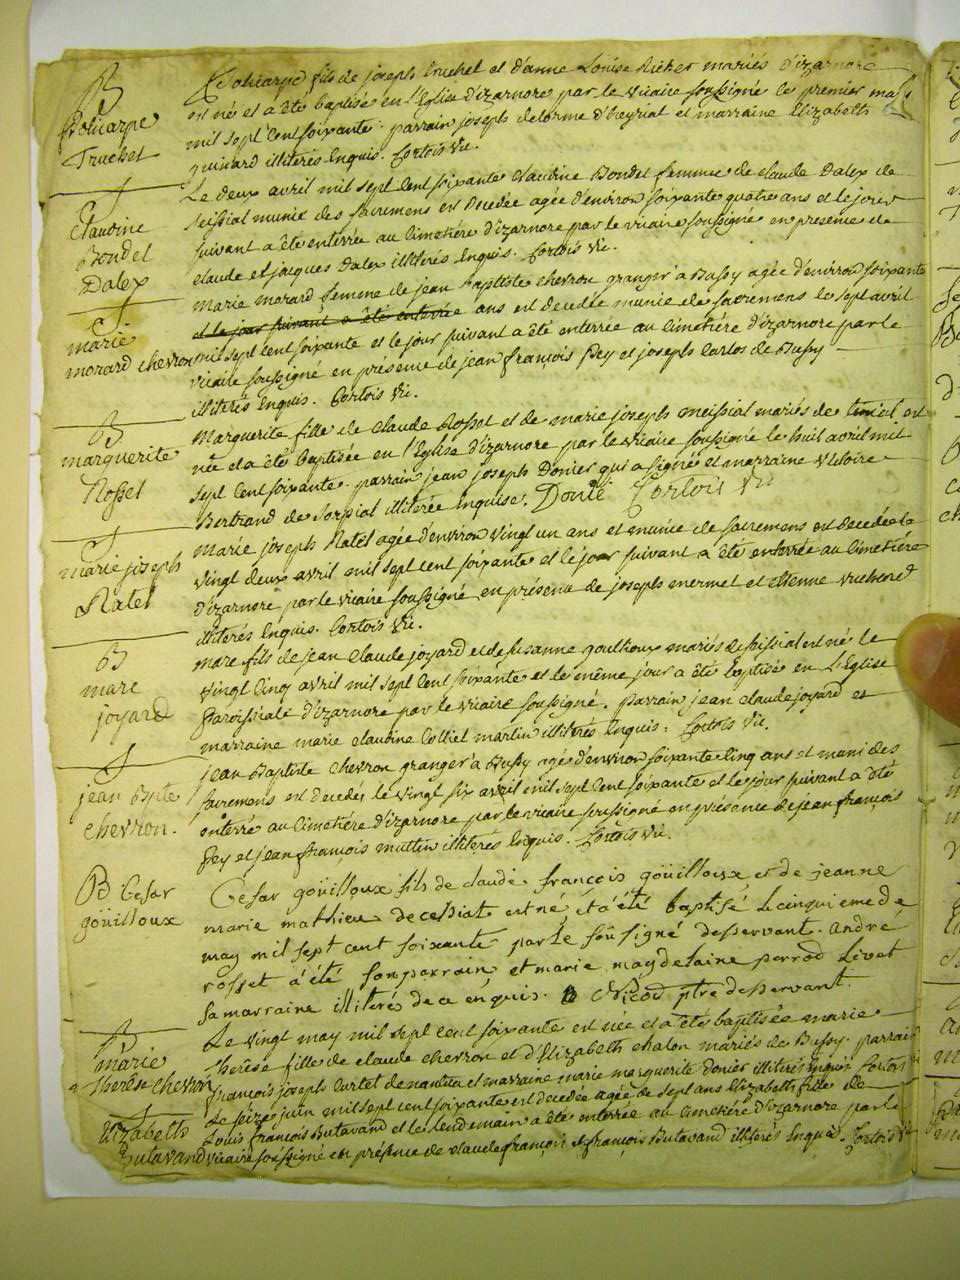 B
Policarpe
Truchet
Policarpe fils de joseph truchet et d'anne Louise Richer mariés d'izarnore
est né et a été baptisée en l'Eglise d'izarnore par le vicaire soussigné le premier mars
mil sept Cent soixante. parrain joseph delorme d'heyriat et marraine Elizabeth
guinard illiterés Enquis. Cortois vic.
Claudine
Bondet
Dalex
Le deux avril mil sept Cent soixante Claudine Bondet femme de claude Dalex de
munie des sacremens est decedée agée d'environ soixante quatre ans et le jour
suivant a été enterrée au Cimetiére d'izarnore par le vicaire soussigné en presence de
claude et jacques Dalex illiterés Enquis. Cortois vic.
marie
morard chevron
marie morard femme de jean baptiste chevron granger à Bussy agée d'environ soixante
et le jour suivant a été enterrée ans est decedée munie de sacremens le sept avril
mil sept Cent soixante et le jour suivant a été enterrée au Cimetiére d'izarnore par le
vicaire soussigné en présence de jean françois Pey et joseph Carlos de Bussy
illiterés Enquis. Cortois vic.
B
marguerite
Rosset
Marguerite fille de claude Rosset et de marie joseph meissiat mariés de est
née et a été baptisée en l'Eglise d'izarnore par le vicaire soussigné le huit avril mil
sept Cent soixante. parrain jean joseph Donier qui a signé et marraine victoire
Bertrand de Sorpiat illiterée Enquise. Donié Cortois vic
marie joseph
Ratel
Marie joseph Ratel agée d'environ vingt un ans et munie de sacremens est decedée le
vingt deux avril mil sept cent soixante et le jour suivant a été enterrée au Cimetiére
d'izarnore par le vicaire soussigné en présence de joseph mermet et etienne
illiterés Enquis. Cortois vic.
B
marc
joyard
marc fils de jean claude joyard et de susanne mariés est né le
vingt Cinq avril mil sept Cent soixante et le même jour a été baptisé en L'Eglise
Paroissiale d'izarnore par le vicaire soussigné. parrain jean claude joyard et
marraine marie claudine Colliet martin illiterés Enquis. Cortois vic.
jean Bpte
chevron.
jean Baptiste chevron granger à Bussy agé d'environ soixante Cinq ans et muni des
sacremens est decedé le vingt six avril mil sept Cent soixante et le jour suivant a été
enterré au Cimetiére d'izarnore par le vicaire soussigné en présence de jean françois
Pey et jean françois mattin illiterés Enquis. Cortois vic.
B Cesar
goüilloux
Cesar goüilloux fils de claude françois goüilloux et de jeanne
marie mathieu de cessiat est né et a été baptisé le cinquieme de
may mil sept cent soixante par le soûsigné desservant. andré
rosset a été son parrain et marie magdelaine perrod Livet
sa marraine illiterés de ce enquis. Nicod ptre desservant.
B
marie
therese chevron
Le vingt may mil sept cent soixante est née et a été baptisée marie
therèse fille de claude chevron et d'Elizabeth chalon mariés de Bussy. parrain
françois joseph Cartet de nantua et marraine marie marguerite Donier illiterés enquis Cortois
Elizabeth
Butavand
Le seize juin mil sept cent soixante est decedée agée de sept ans Elizabeth fille de
Louis françois Butavand et le lendemain a été enterrée au Cimetiére d'izarnore par le
vicaire soussigné en présence de claude françois et françois Butavand illiterés Enquis. Cortois vic